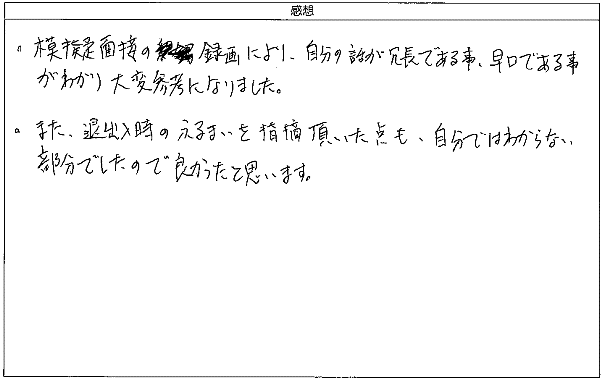 感想
。模擬面接の録画により、自分の話が冗長である事、早口である事
がわかり大変参考になりました。
。また、退出入時のふるまいを指摘頂いた点も、自分ではわからない
部分でしたので良かったと思います。